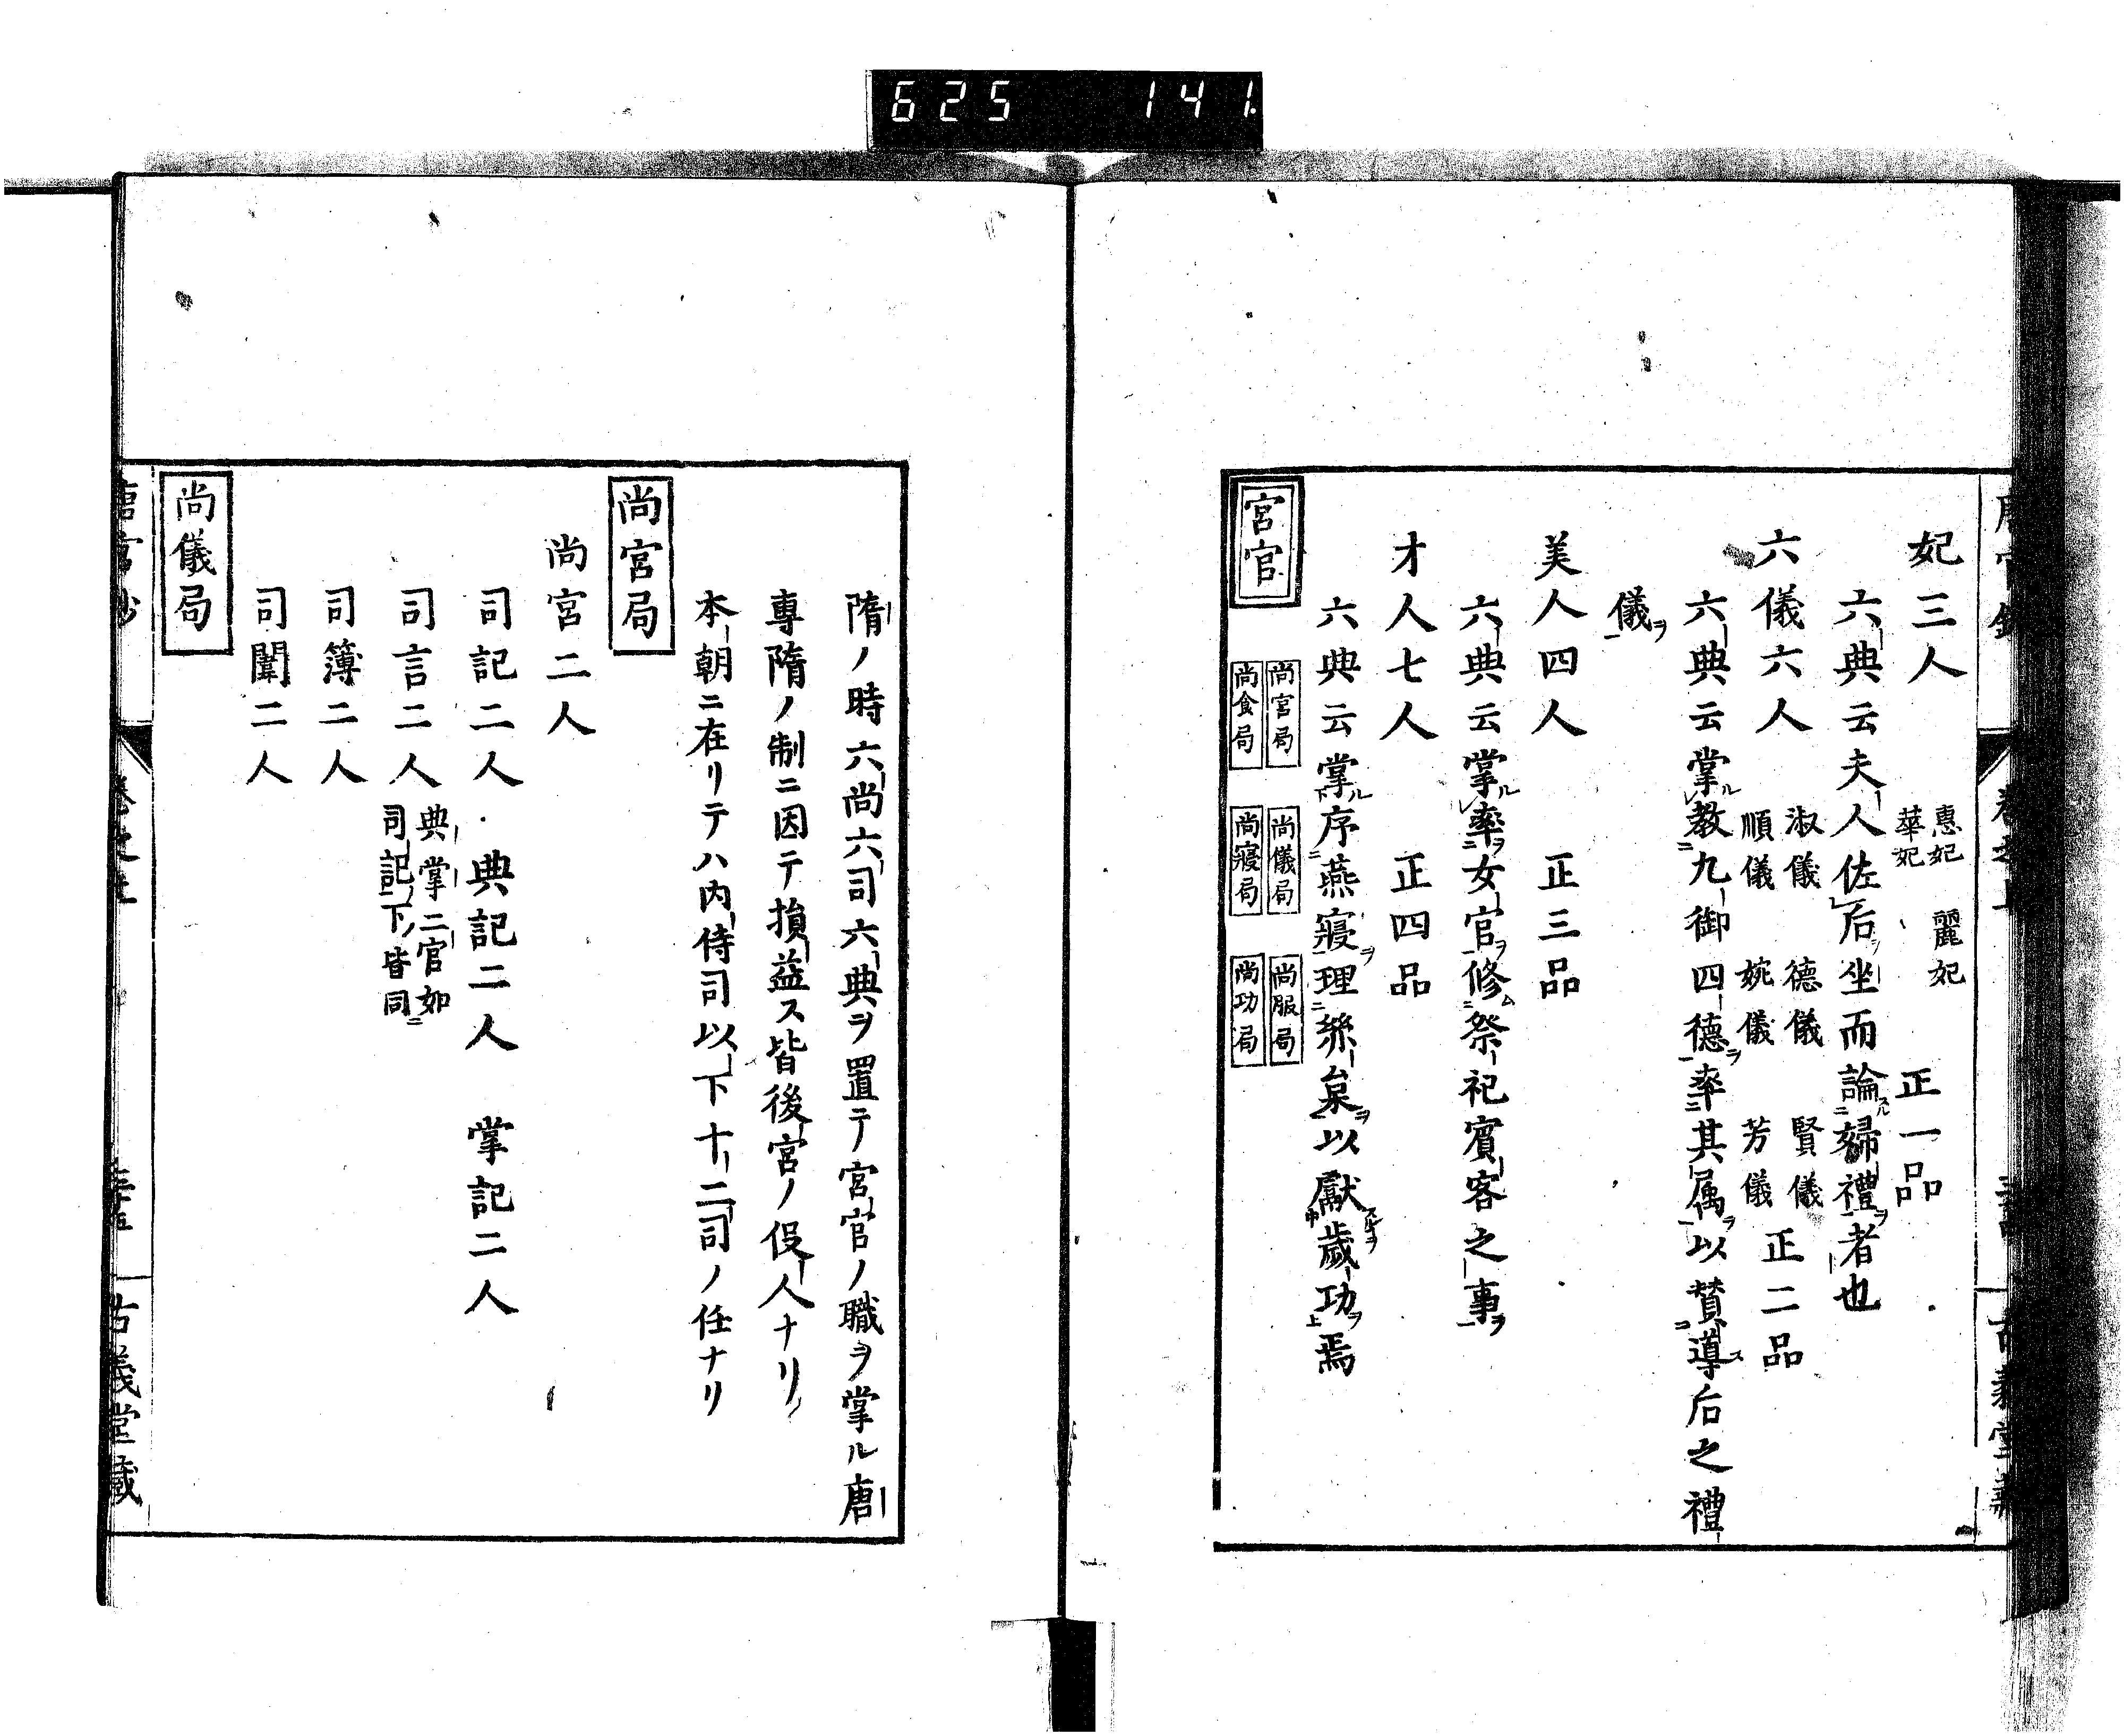 625 141
妃三人 惠妃 麗妃 華妃 正一品
六典云夫人佐后坐而論婦禮者也
六儀六人 淑儀 德儀 賢儀 順儀 婉儀 芳儀 正二品
六典云掌教九御四德率其属以賛導后之禮
儀
美人四人 正三品
六典云掌率女官修祭祀賓客之事
才人七人 正四品
六典云掌序燕寢理絲枲以獻歲功焉
宮官 尚宮局 尚儀局 尚服局 尚食局 尚寢局 尚功局
隋ノ時六尚六司六典ヲ置テ宮官ノ職ヲ掌ル唐
專隋ノ制ニ因テ損益ス皆後宮ノ役人ナリ
本朝ニ在リテハ内侍司以下十二司ノ任ナリ
尚宮局
尚宮二人
司記二人 典記二人 掌記二人
司言二人 典掌二官如司記下皆同
司簿二人
司闈二人
尚儀局
唐官鈔 卷之上 古義堂藏